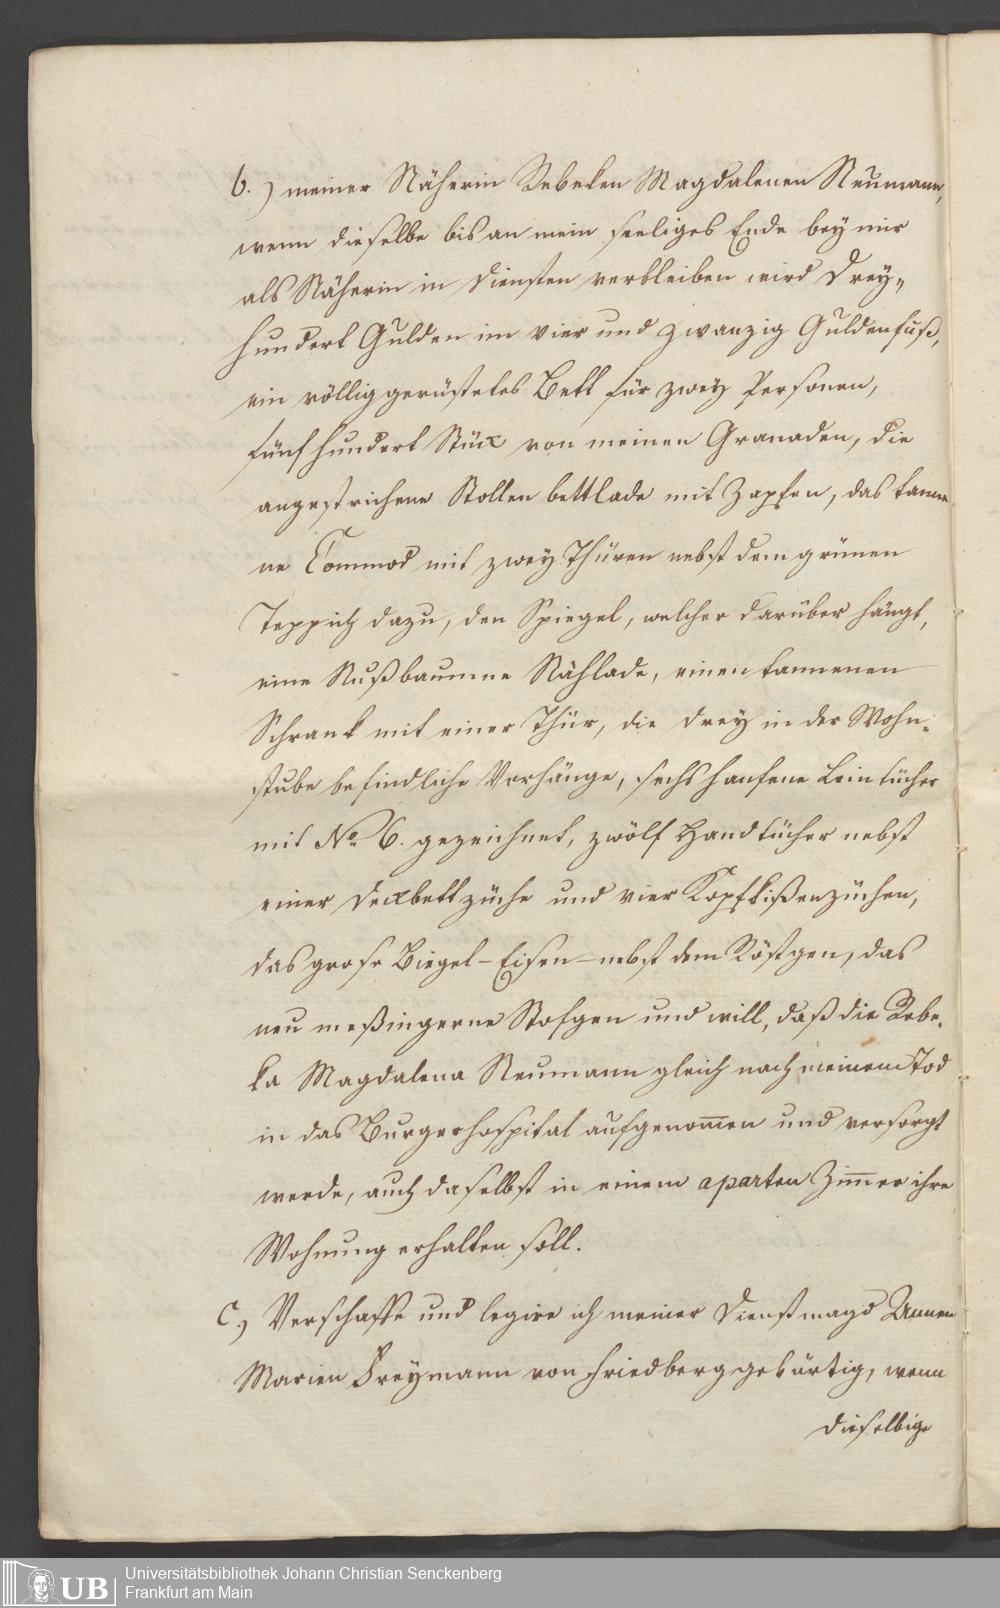 b.) meiner Näherin Rebeken Magdalenen Neumann,
wenn dieselbe bis an mein seeliges Ende bey mir
als Näherin in Diensten verbleiben wird Drey„
hundert Gulden im vier und zwanzig Guldenfuß,
ein völlig gerüstetes Bett für zwey Personen,
fünfhundert Stück von meinen Granaden, die
angestrichene Stollen bettlade mit Zapfen, das tanne
ne Commod mit zwey Thüren nebst dem grünen
Teppich dazu, den Spiegel, welcher darüber hängt,
eine Nußbaumne Nählade, einen tannenen
Schrank mit einer Thür, die drey in der Wohn„
stube befindliche Vorhänge, sechs hanfene Leintücher
mit No 6. gezeichnet, zwölf Handtücher nebst
einer Deckbettzüche und vier Kopfkißenzüchen,
das grose Biegel-Eisen nebst dem Röstgen, das
neu meßingerne Stofgen und will, daß die Rebe„
ka Magdalena Neumann gleich nach meinem Tod
in das Burgerhospital aufgenom̅en und versorgt
werde, auch daselbst in einem aparten Zim̅er ihre
Wohnung erhalten soll.
C.) Verschaffe und legire ich meiner Dienstmagd Annen
Marien Freymann von Friedberg gebürtig, wenn
dieselbige
UB
Universitätsbibliothek Johann Christian Senckenberg
Frankfurt am Main